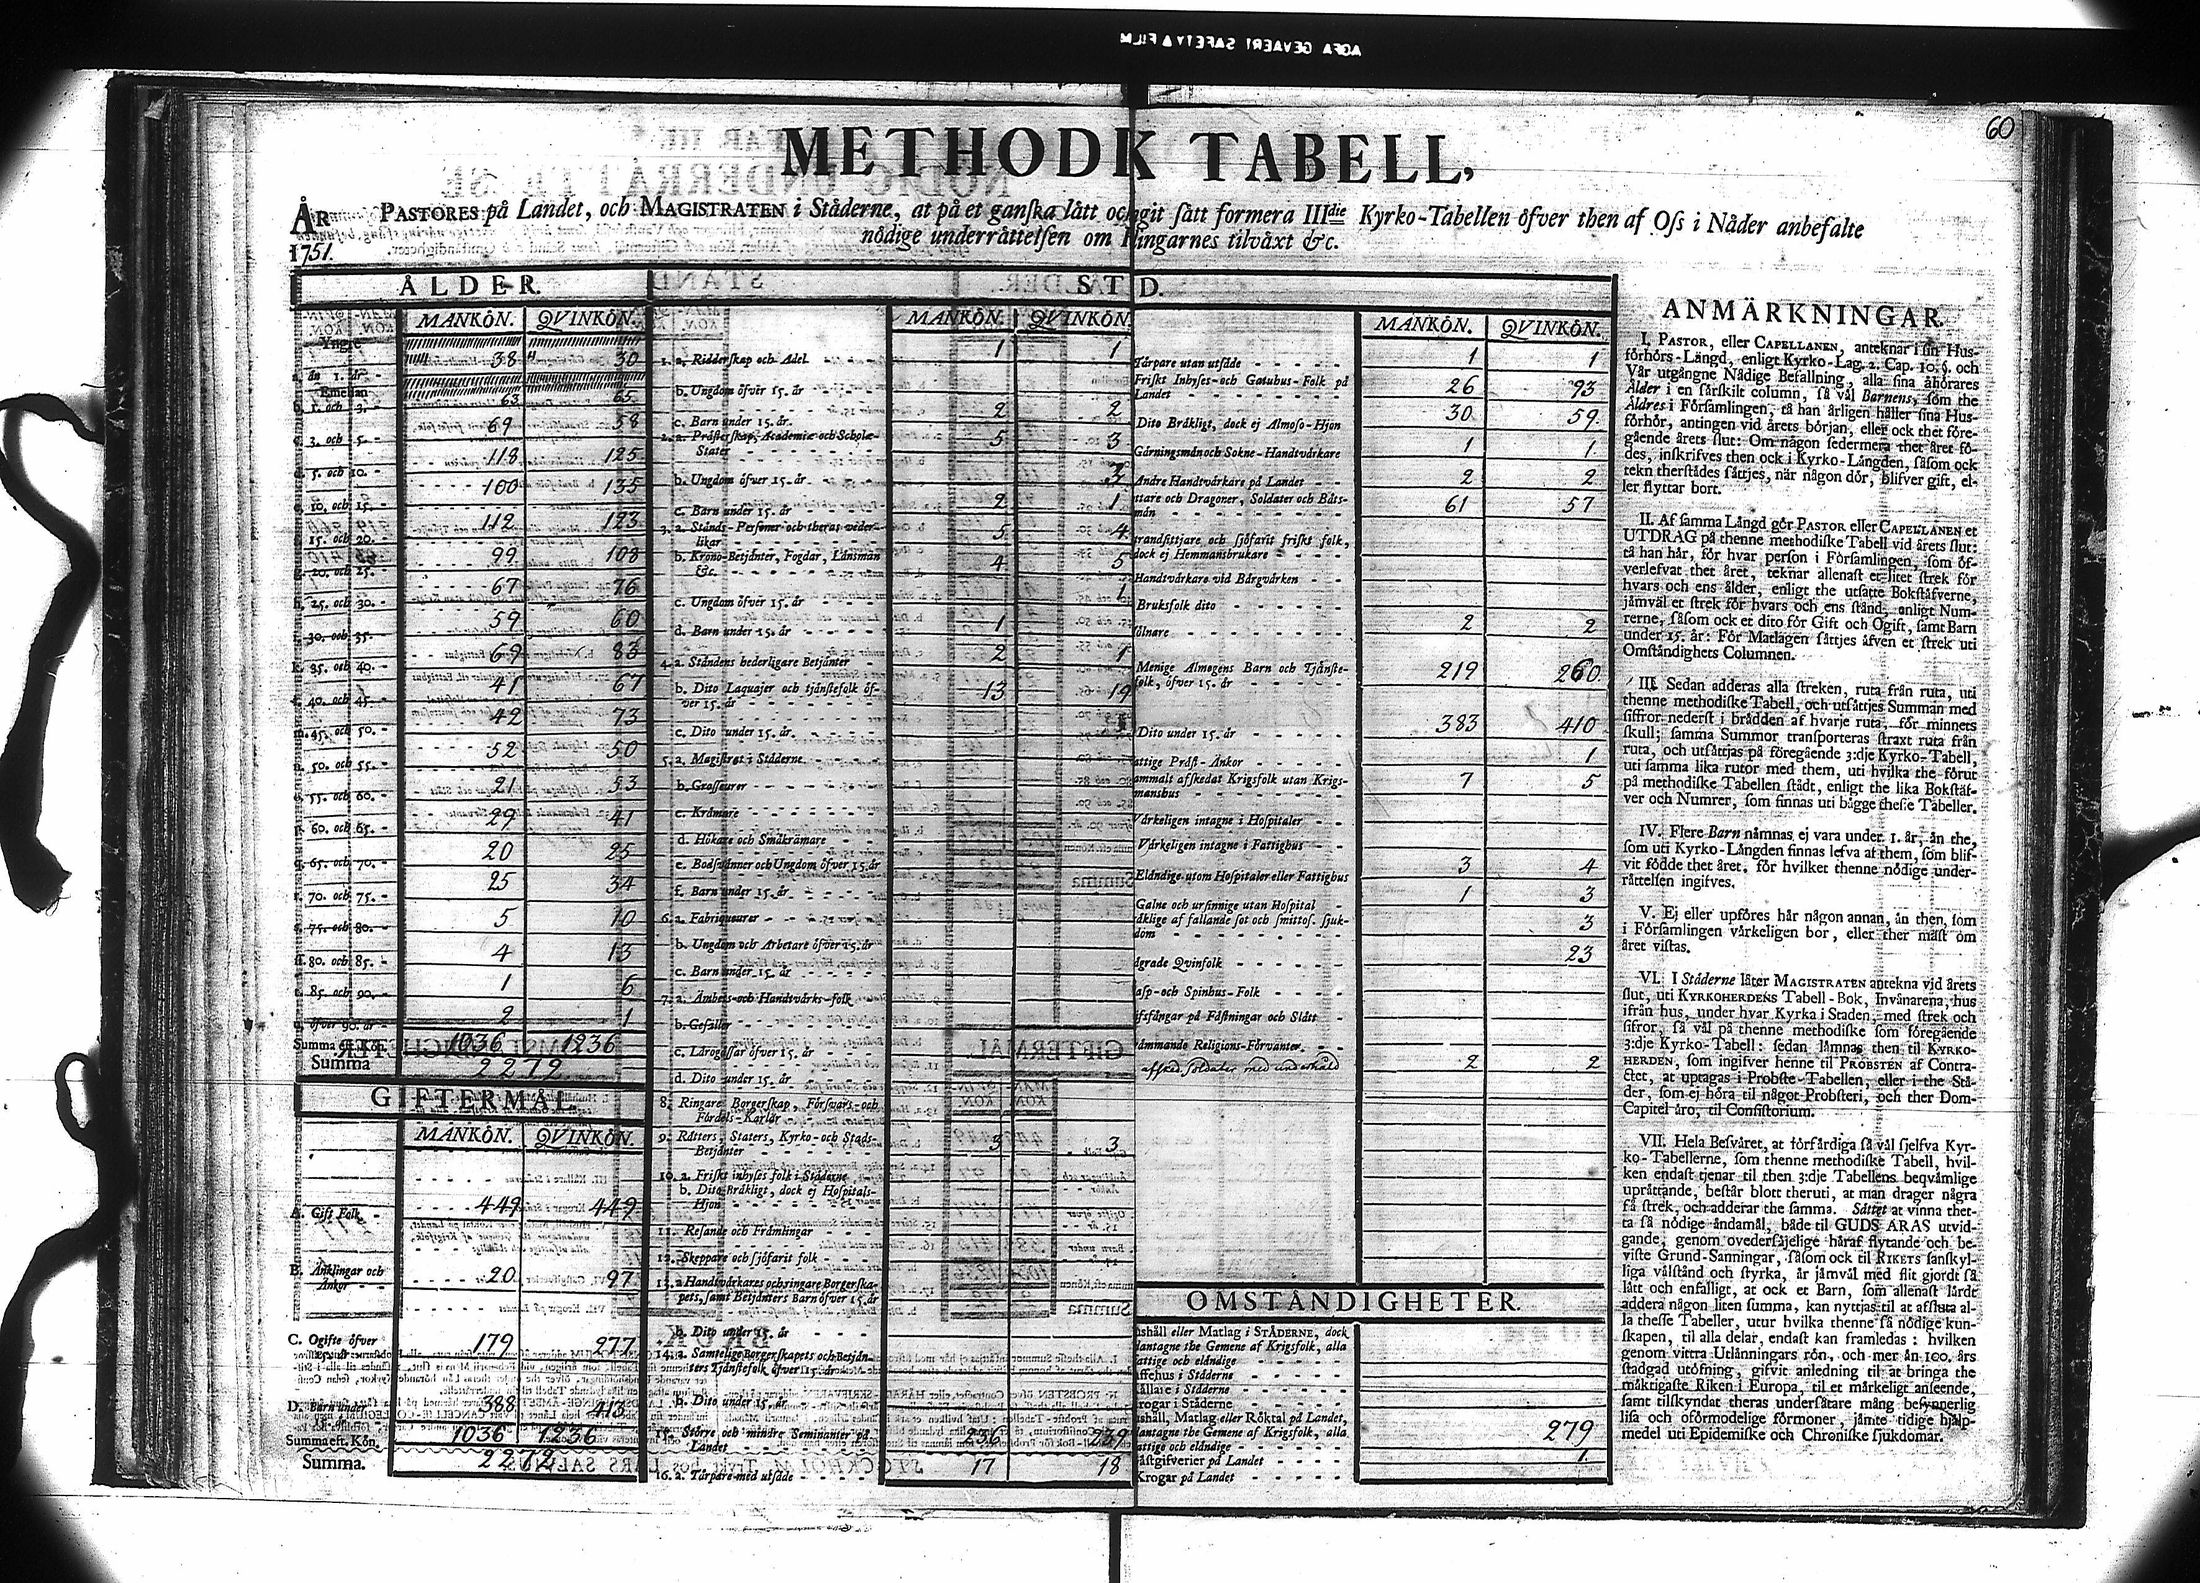 AGFA GEVAERT SAFETY ▲ FILM
60
METHODK TABELL,
ÅR 1751.
PASTORES på Landet, och MAGISTRATEN i Ståderne, at på et ganska lått och git sått formera IIIdie Kyrko-Tabellen öfver then af Oss i Nåder anbefalte
nödige underråttelsen om ingarnes tilvåxt &c.
ÅLDER.
MANKÖN. QVINKÖN.
Yngre
än 1. år - 38 30
Emellan
b. 1. och 3. - 63 65
c. 3. och 5. - 69 58
d. 5. och 10. - 118 125
e. 10. och 15. - 100 135
f. 15. och 20. - 112 123
g. 20. och 25. 99 108
h. 25. och 30. - 67 76
i. 30. och 35. 59 60
k. 35. och 40. - 69 83
l. 40. och 45. - 41 67
m. 45. och 50. - 42 73
n. 50. och 55. - 52 50
o. 55. och 60. - 21 53
p. 60. och 65. - 29 41
q. 65. och 70. - 20 25
r. 70. och 75. - 25 34
s. 75. och 80. - 5 10
ſſ. 80. och 85. - 4 13
t. 85. och 90. - 1 6
u. öfver 90. år - 2 1
Summa eft. Kön. 1036 1236
Summa 2272
GIFTERMÅL
MANKÖN. QVINKÖN.
A. Gift Folk - 449 449
B. Änklingar och
Änkor - 20 97
C. Ogifte öfver
15. år 179 277
D. Barn under
15. år 388 413
Summa eft. Kön. 1036 1236
Summa. 2272
ST D.
MANKÖN. QVINKÖN.
1. a. Ridderskap och Adel 1 1
b. Ungdom öfver 15. år
c. Barn under 15. år. 2 2
2. a. Pråsterskap, Academiæ och Scholæ-
Stater 5 3
b. Ungdom öfver 15. år 3
c. Barn under 15. år 2 1
3. a. Stånds-Personer och theras veder-
likar 5 4
b. Krono-Betjånter, Fogdar, Lånsmån
&c. 4 5
c. Ungdom öfver 15. år 1
d. Barn under 15. år 1
4. a. Ståndens hederligare Betjånter 2 1
b. Dito Laquajer och tjånstefolk öf-
ver 15. år 13 19
c. Dito under 15. år. 1
5. a. Magistrat i Ståderne
b. Grosseurer
c. Kråmare
d. Hökare och Småkråmare
e. Bodsvånner och Ungdom öfver 15. år
f. Barn under 15. år
6. a. Fabriqueurer
b. Ungdom och Arbetare öfver 15. år
c. Barn under 15. år
7. a. Åmbets-och Handtvårks-folk
b. Gesåller
c. Lårogossar öfver 15. år
d. Dito under 15. år
8. Ringare Borgerskap, Försvars-och
Fördels-Karlar
9. Råtters, Staters, Kyrko-och Stads-
Betjånter 3 3
10. a. Friskt inhyses folk i Ståderne
b. Dito Bråkligt, dock ej Hospitals-
Hjon
11. Resande och Fråmlingar
12. Skeppare och sjöfarit folk
13. a Handtvårkares och ringare Borgerska-
pets, samt Betjånters Barn öfver 15. år
b. Dito under 15. år
14. a. Samtelige Borgerskapets och Betjån-
ters Tjånstefolk öfver 15. år
b. Dito under 15. år
15. Större och mindre Seminanter på
Landet 236 239
16. a. Torpare med utsåde 17 18
MANKÖN. QVINKÖN.
Torpare utan utsåde 1 1
Friskt Inhyses-och Gatuhus-Folk på
Landet 26 93
Dito Bråkligt, dock ej Almoso-Hjon 30 59
Gårningsmån och Sokne-Handtvårkare 1 1
Andre Handtvårkare på Landet 2 2
ttare och Dragoner, Soldater och Båts-
mån 61 57
trandsittjare och sjöfarit friskt folk,
dock ej Hemmansbrukare
Handtvårkare vid Bårgvårken
Bruksfolk dito
ölnare 2 2
Menige Almogens Barn och Tjånste-
folk, öfver 15. år 219 260
Dito under 15. år 383 410
attige Pråst-Änkor 1
ammalt afskedat Krigsfolk utan Krigs-
manshus 7 5
Vårkeligen intagne i Hospitaler
Vårkeligen intagne i Fattighus
Elåndige utom Hospitaler eller Fattighus 3 4
Galne och ursinnige utan Hospital 1 3
åklige af fallande sot och smittos. sjuk-
dom 3
dgrade Qvinfolk 23
asp-och Spinhus-Folk
ifsfångar på Fåstningar och Slått
råmmande Religions-Förvanter
afsked. soldater med underhåld 2 2
OMSTÅNDIGHETER.
ushåll eller Matlag i STÅDERNE, dock
dantagne the Gemene af Krigsfolk, alla
attige och elåndige
affehus i Ståderne
ållare i Ståderne
rogar i Ståderne
ushåll, Matlag eller Röktal på Landet,
dantagne the Gemene af Krigsfolk, alla
attige och elåndige 279
åstgifverier på Landet 1.
Krogar på Landet
ANMÄRKNINGAR.
I. PASTOR, eller CAPELLANEN, antecknar i sin Hus-
förhörs-Långd, enligt Kyrko-Lag. 2. Cap. 10. §. och
Vår utgångne Nådige Befallning, alla sina åhörares
Ålder i en sårskilt column, så vål Barnens, som the
Äldres i Församlingen, tå han årligen håller sina Hus-
förhör, antingen vid årets början, eller ock thet före-
gående årets slut: Om någon sedermera thet året fö-
des, inskrifves then ock i Kyrko-Långden, såsom ock
tekn therstådes såttjes, når någon dör, blifver gift, el-
ler flyttar bort.
II. Af samma Långd gör PASTOR eller CAPELLANEN et
UTDRAG på thenne methodiske Tabell vid årets slut:
tå han hår, för hvar person i Församlingen, som öf-
verlefvat thet året, teknar allenast et litet strek för
hvars och ens ålder, enligt the utsatte Bokståfverne,
jåmvål et strek för hvars och ens stånd, enligt Num-
rerne, såsom ock et dito för Gift och Ogift, samt Barn
under 15. år: För Matlagen såttjes åfven et strek uti
Omståndighets Columnen.
III. Sedan adderas alla streken, ruta från ruta, uti
thenne methodiske Tabell, och utsåttjes Summan med
siffror nederst i brådden af hvarje ruta, för minnets
skull; samma Summor transporteras straxt ruta från
ruta, och utsåttjas på föregående 3:dje Kyrko-Tabell,
uti samma lika rutor med them, uti hvilka the förut
på methodiske Tabellen stådt, enligt the lika Bokståf-
ver och Numrer, som finnas uti bågge thesse Tabeller.
IV. Flere Barn nåmnas ej vara under 1. år, ån the,
som uti Kyrko-Långden finnas lefva af them, som blif-
vit födde thet året, för hvilket thenne nödige under-
råttelsen ingifves.
V. Ej eller upföres hår någon annan, ån then, som
i Församlingen vårkeligen bor, eller ther måst om
året vistas.
VI. I Ståderne låter MAGISTRATEN antekna vid årets
slut, uti KYRKOHERDENS Tabell-Bok, Invånarena, hus
ifrån hus, under hvar Kyrka i Staden, med strek och
sifror, så vål på thenne methodiske som föregående
3:dje Kyrko-Tabell: sedan låmnas then til KYRKO-
HERDEN, som ingifver henne til PROBSTEN af Contra-
ctet, at uptagas i Probste-Tabellen, eller i the Ståd-
der, som ej höra til något Probsteri, och ther Dom-
Capitel åro, til Consistorium.
VII. Hela Besvåret, at förfårdiga så vål sjelfva Kyr-
ko-Tabellerne, som thenne methodiske Tabell, hvil-
ken endast tjenar til then 3:dje Tabellens beqvåmlige
upråttande, består blott theruti, at man drager några
få strek, och adderar the samma. Såttet at vinna thet-
ta så nödige åndamål, både til GUDS ÅRAS utvid-
gande, genom ovedersåjelige håraf flytande och be-
viste Grund-Sanningar, såsom ock til RIKETS sanskyl-
liga vålstånd och styrka, år jåmvål med flit gjordt så
lått och enfalligt, at ock et Barn, som allenast lårdt
addera någon liten summa, kan nyttjas til at afsluta al-
la thesse Tabeller, utur hvilka thenne så nödige kun-
skapen, til alla delar, endast kan framledas: hvilken
genom vittra Utlånningars rön, och mer ån 100. års
stadgad utöfning, gifvit anledning til at bringa the
måktigaste Riken i Europa, til et mårkeligt anseende,
samt tilskyndat theras undersåtare mång besynnerlig
lisa och oförmodelige förmoner, jåmte tidige hjålp-
medel uti Epidemiske och Chroniske sjukdomar.